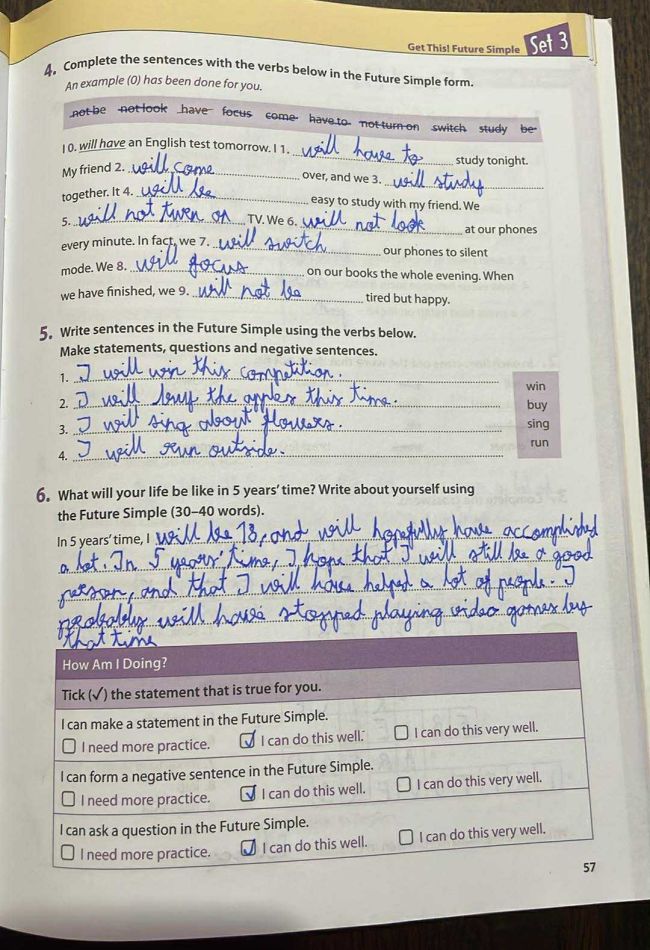 Get This! Future Simple Set 3
4. Complete the sentences with the verbs below in the Future Simple form.
An example (0) has been done for you.
not be not look have focus come have to not turn on switch study be
I 0. will have an English test tomorrow. I 1. will have to study tonight.
My friend 2. will come over, and we 3. will study
together. It 4. will be easy to study with my friend. We
5. will not turn on TV. We 6. will not look at our phones
every minute. In fact, we 7. will switch our phones to silent
mode. We 8. will focus on our books the whole evening. When
we have finished, we 9. will not be tired but happy.
5. Write sentences in the Future Simple using the verbs below.
Make statements, questions and negative sentences.
1. I will win this competition.
2. I will buy the apples this time.
3. I will sing about flowers.
4. I will run outside.
win
buy
sing
run
6. What will your life be like in 5 years' time? Write about yourself using
the Future Simple (30–40 words).
In 5 years' time, I will be 18, and will hopefully have accomplished
a lot. In 5 years' time, I hope that I will still be a good
person, and that I will have helped a lot of people. I
probably will have stopped playing video games by
that time
How Am I Doing?
Tick (✓) the statement that is true for you.
I can make a statement in the Future Simple.
I need more practice. I can do this well. I can do this very well.
I can form a negative sentence in the Future Simple.
I need more practice. I can do this well. I can do this very well.
I can ask a question in the Future Simple.
I need more practice. I can do this well. I can do this very well.
57